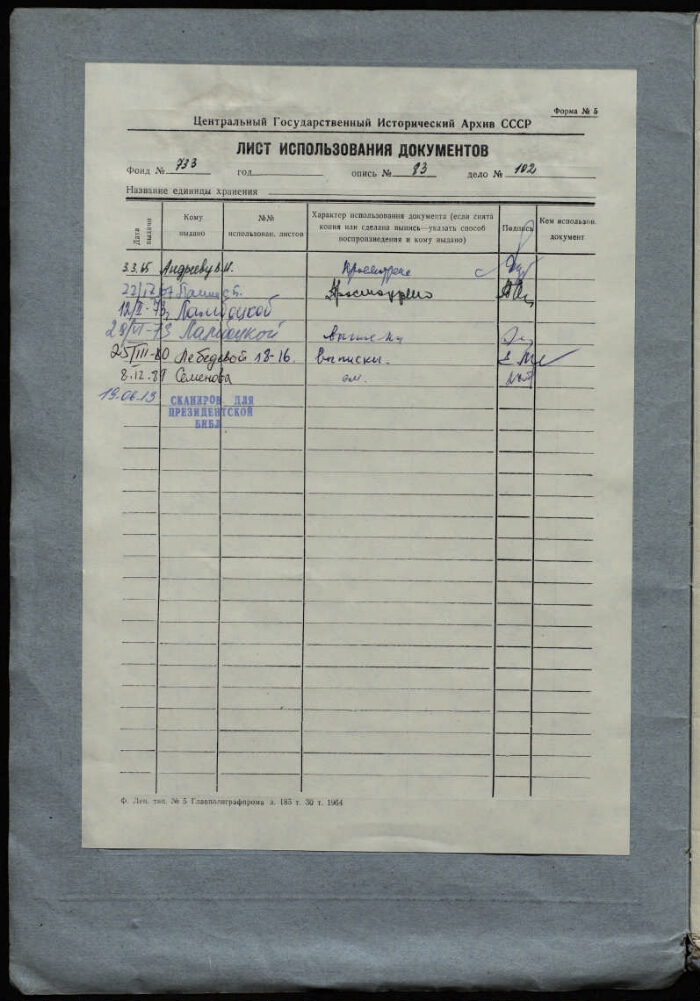 Форма № 5
Центральный Государственный Исторический Архив СССР
ЛИСТ ИСПОЛЬЗОВАНИЯ ДОКУМЕНТОВ
Фонд № 733 год опись № 83 дело № 102
Название единицы хранения
Дата выдачи
Кому выдано
№№ использован. листов
Характер использования документа (если снята
копия или сделана выпись—указать способ
воспроизведения и кому выдано)
Подпись
Кем использов. документ
3.3.65 Андрееву
Просмотрено
12/II-73,
28/VI-73
выписки
25/III-80 Лебедевой 18-16. Выписки.
8.12.89 Семенова
19.06.13 СКАНИРОВ. ДЛЯ
ПРЕЗИДЕНТСКОЙ
БИБЛ
Ф. Лен. тип. № 5 Главполиграфпрома з. 185 т. 30 т. 1964